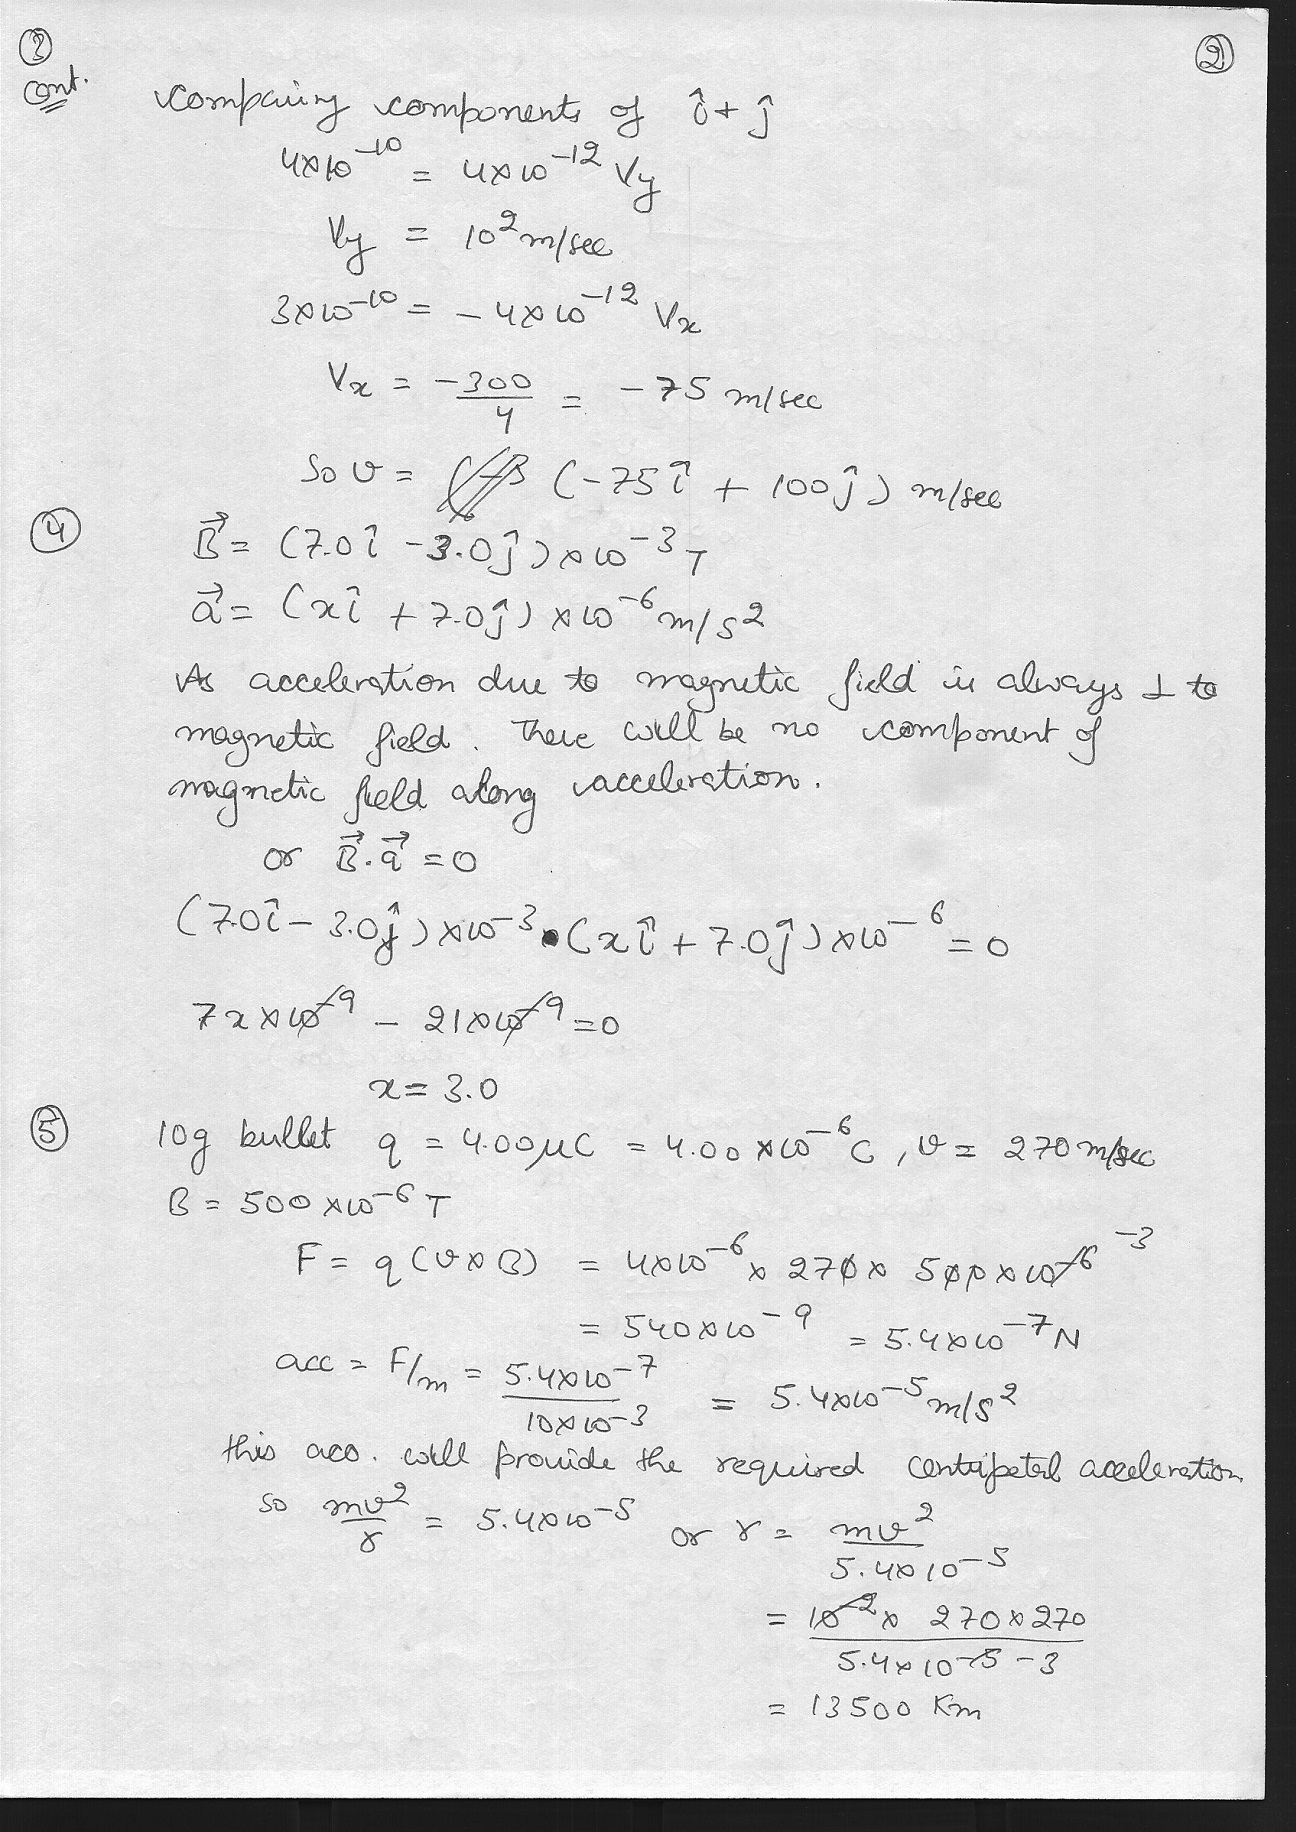 ③ ②
cont. Comparing components of î + ĵ
4×10⁻¹⁰ = 4×10⁻¹² Vy
Vy = 10² m/sec
3×10⁻¹⁰ = − 4×10⁻¹² Vx
Vx = −300/4 = − 75 m/sec
So v = (−75î + 100ĵ) m/sec
④ B⃗ = (7.0î − 3.0ĵ)×10⁻³ T
a⃗ = (xî + 7.0ĵ)×10⁻⁶ m/s²
As acceleration due to magnetic field is always ⊥ to
magnetic field. There will be no component of
magnetic field along acceleration.
or B⃗.a⃗ = 0
(7.0î − 3.0ĵ)×10⁻³•(xî + 7.0ĵ)×10⁻⁶ = 0
7x×10⁻⁹ − 21×10⁻⁹ = 0
x = 3.0
⑤ 10g bullet q = 4.00μC = 4.00×10⁻⁶C, v = 270 m/sec
B = 500×10⁻⁶ T
F = q(v×B) = 4×10⁻⁶ × 270 × 500×10⁻⁶ ⁻³
= 540×10⁻⁹ = 5.4×10⁻⁷ N
acc = F/m = 5.4×10⁻⁷/10×10⁻³ = 5.4×10⁻⁵ m/s²
this acc. will provide the required centripetal acceleration
so mv²/r = 5.4×10⁻⁵ or r = mv²/5.4×10⁻⁵
= 10⁻² × 270×270/5.4×10⁻⁵ ⁻³
= 13500 Km